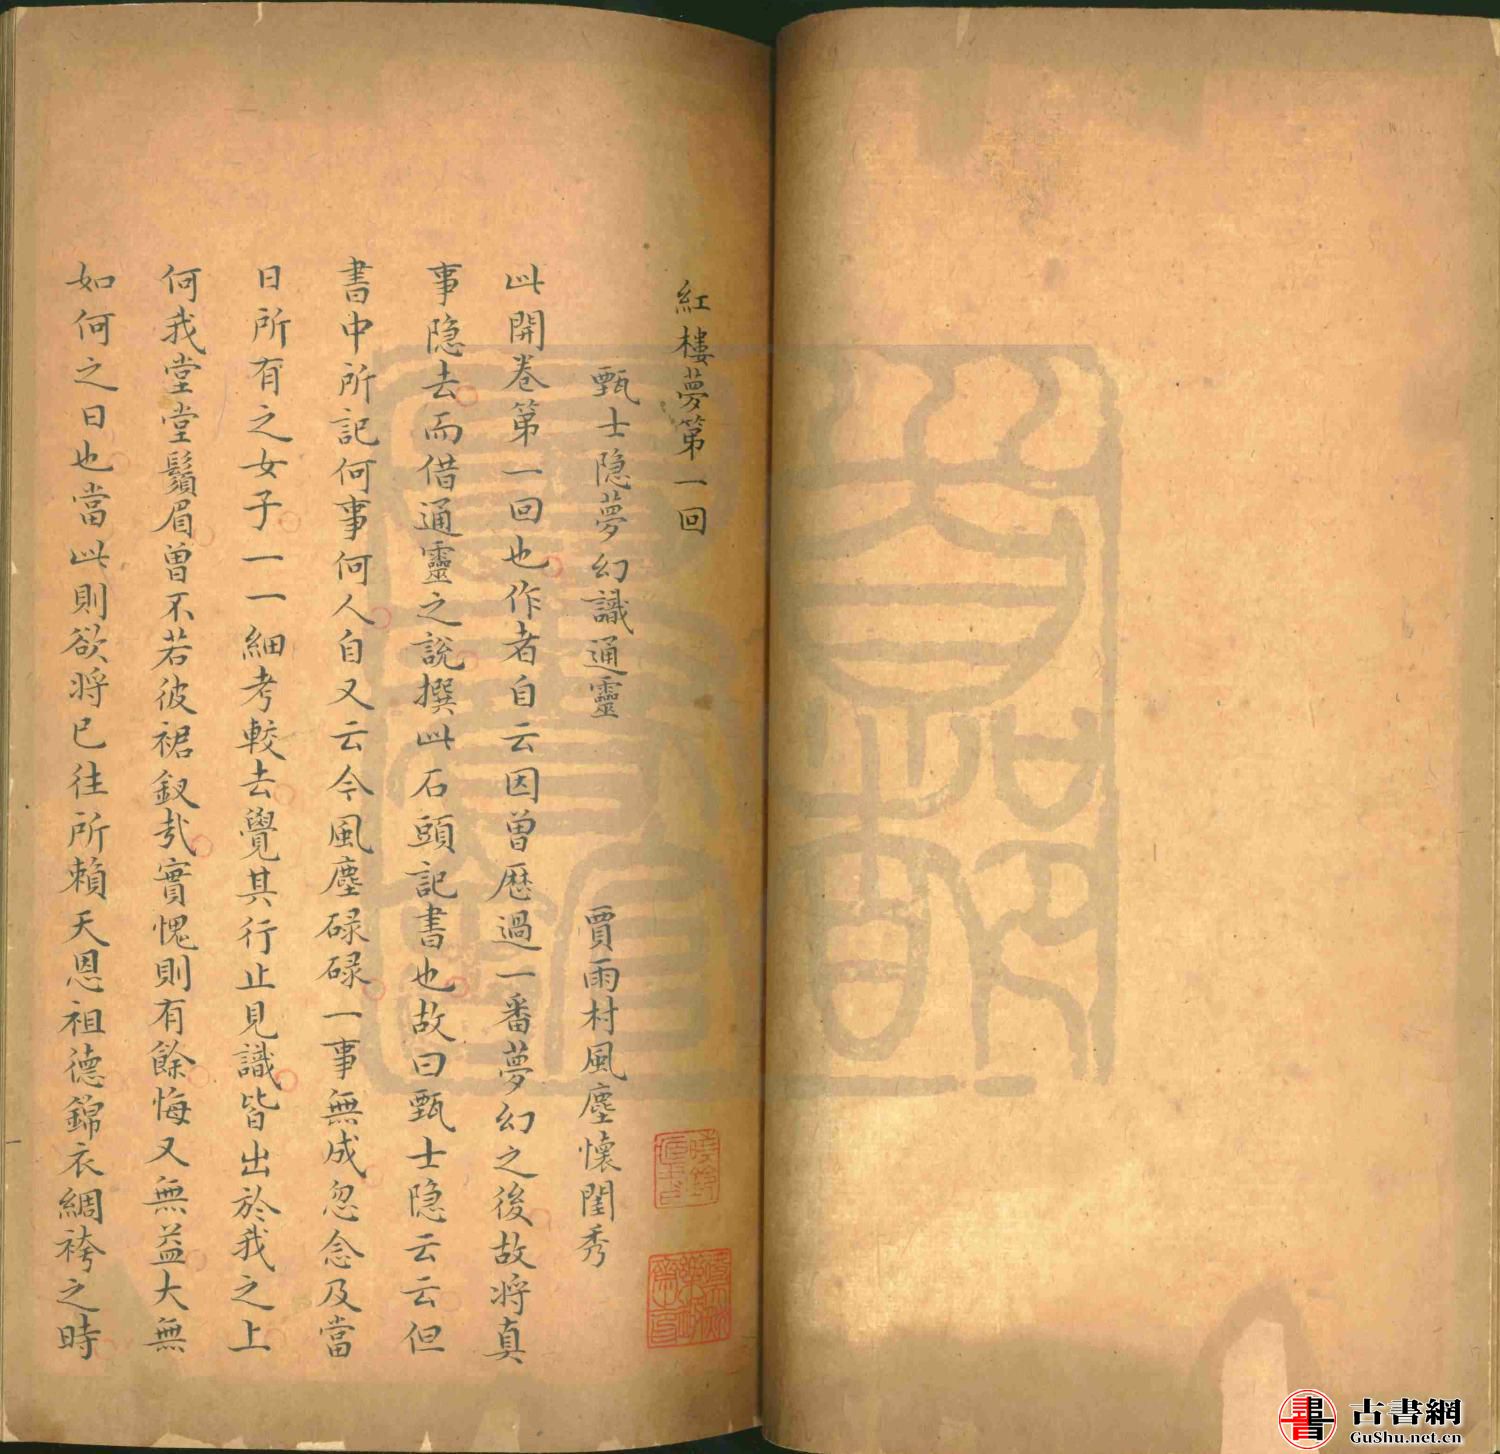 紅樓夢第一回
甄士隐夢幻識通靈　賈雨村風塵懷閨秀
此開卷第一回也作者自云因曾歷過一番夢幻之後故将真
事隐去而借通靈之說撰此石頭記書也故曰甄士隐云云但
書中所記何事何人自又云今風塵碌碌一事無成忽念及當
日所有之女子一一細考較去覺其行止見識皆出於我之上
何我堂堂鬚眉曾不若彼裙釵哉實愧則有餘悔又無益大無
如何之日也當此則欲将已往所賴天恩祖德錦衣綢袴之時
書
古書網
GuShu.net.cn